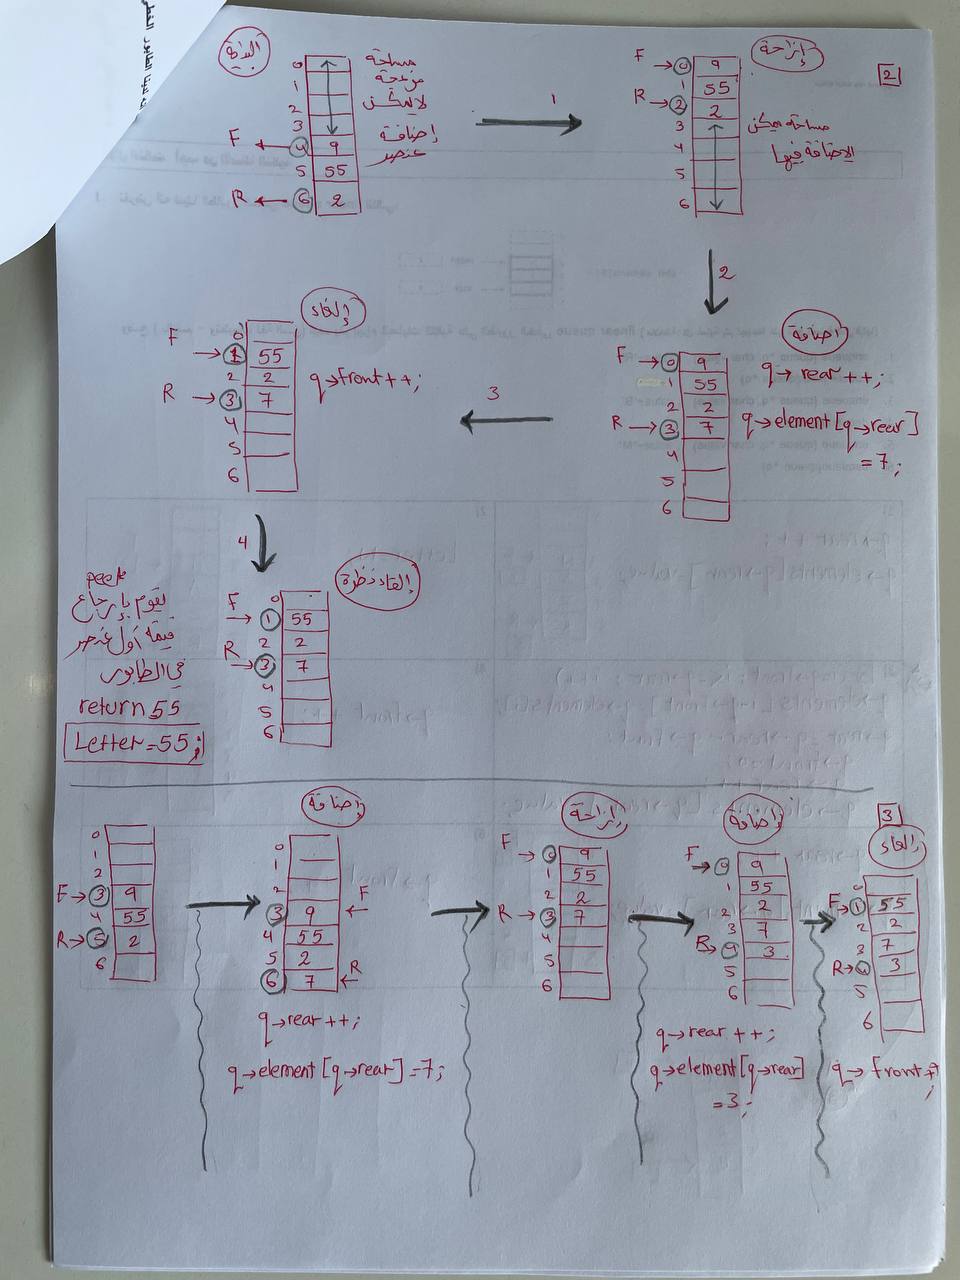 2
البداية
0
1
2
3
F 4 9
5 55
R 6 2
مساحة
مزعجة
لا يمكن
إضافة
عنصر
1
إزاحة
F 0 9
1 55
R 2 2
3
4
5
6
مساحة يمكن
الإضافة فيها
2
إضافة
F 0 9
1 55
2 2
R 3 7
4
5
6
q→rear ++;
q→element[q→rear]
=7;
3
إلغاء
0
F 1 55
2 2
R 3 7
4
5
6
q→front++;
4
إلقاء نظرة
0
F 1 55
2 2
R 3 7
4
5
6
peek
يقوم بإرجاع
قيمة أول عنصر
في الطابور
return 55
Letter=55;
3
0
1
2
F 3 9
4 55
R 5 2
6
إضافة
0
1
2
3 9 F
4 55
5 2
6 7 R
q→rear ++;
q→element[q→rear]=7;
إزاحة
F 0 9
1 55
2 2
R 3 7
4
5
6
إضافة
F 0 9
1 55
2 2
3 7
R 4 3
5
6
q→rear ++;
q→element[q→rear]
=3;
إلغاء
0
F 1 55
2 2
3 7
R 4 3
5
6
q→front++
;